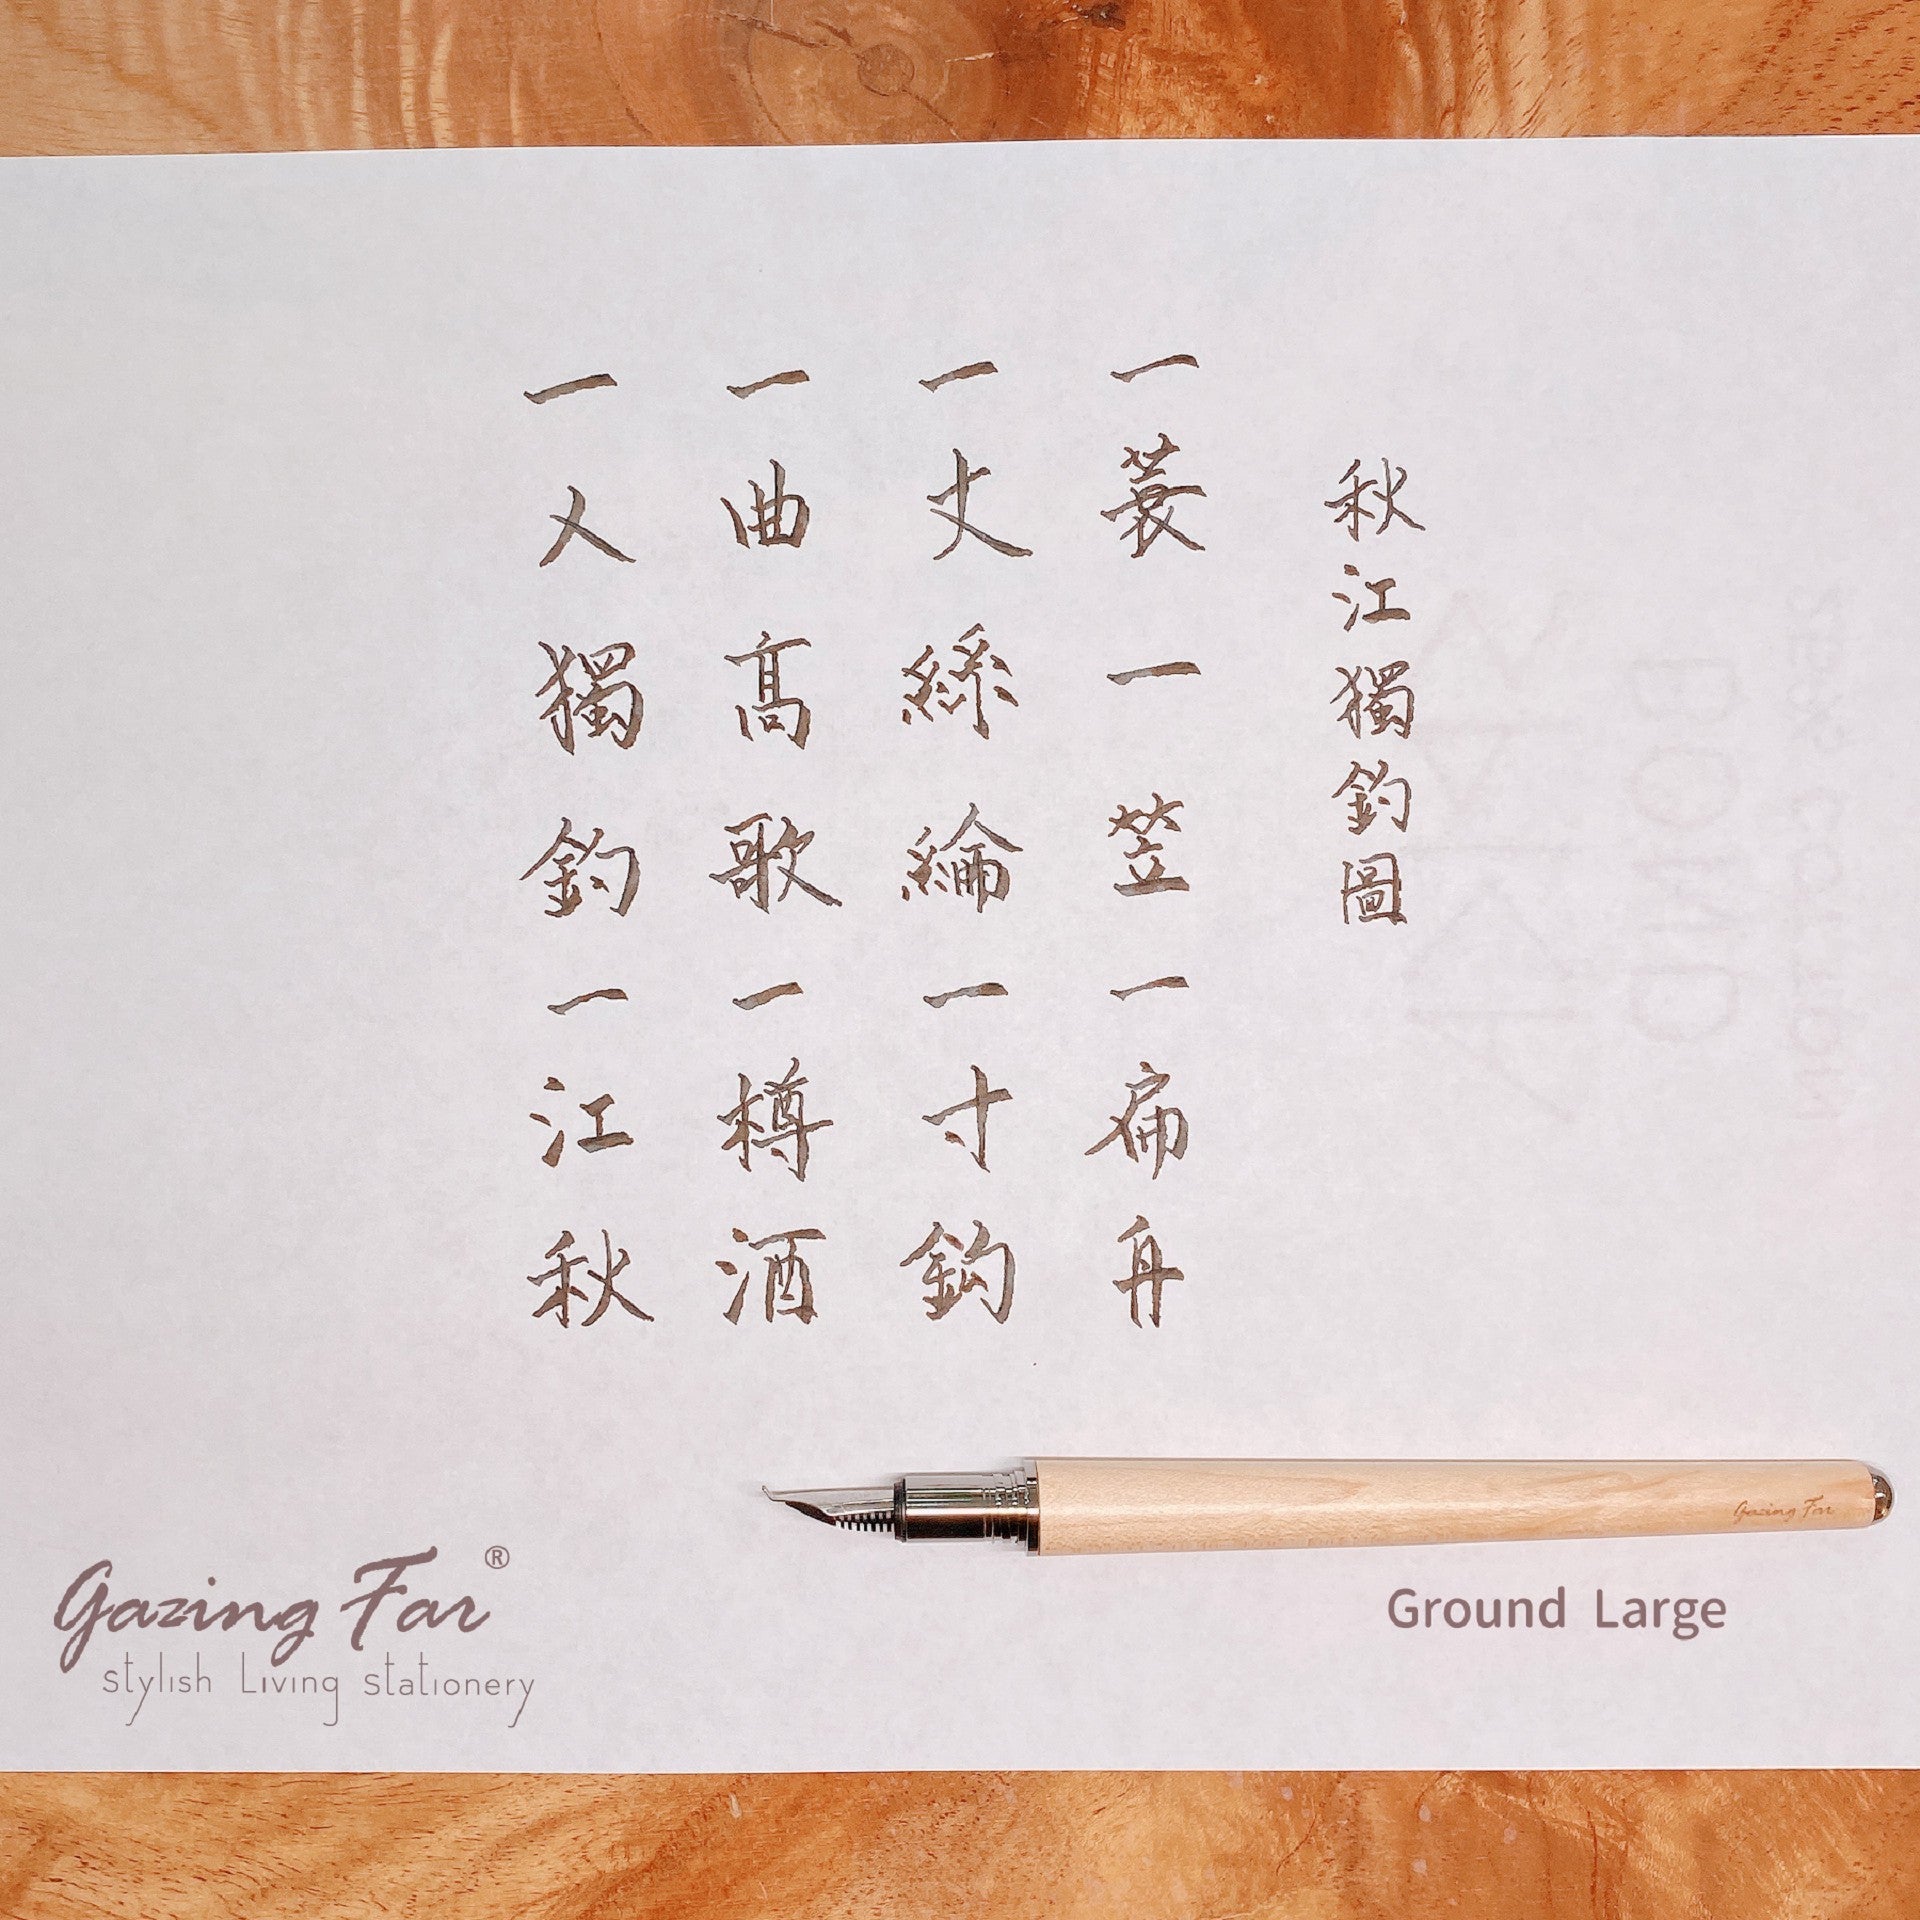 秋江獨釣圖
一蓑一笠一扁舟
一丈絲綸一寸鈎
一曲高歌一樽酒
一人獨釣一江秋
Gazing Far
Gazing Far®
stylish Living stationery
Ground Large